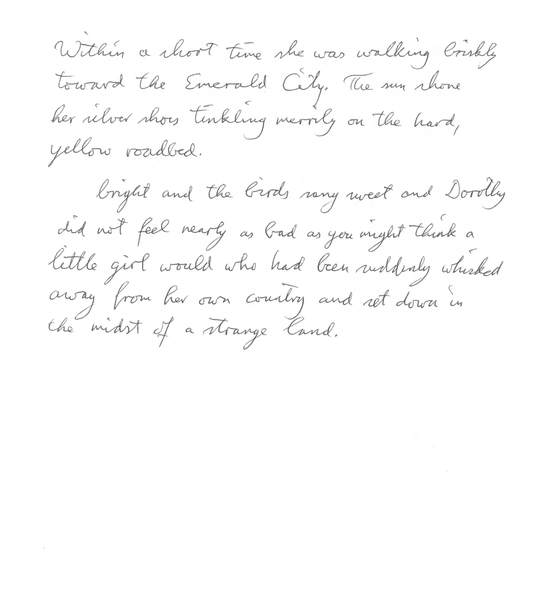 Within a short time she was walking briskly
toward the Emerald City. The sun shone
her silver shoes tinkling merrily on the hard,
yellow roadbed.
bright and the birds sang sweet and Dorothy
did not feel nearly as bad as you might think a
little girl would who had been suddenly whisked
away from her own country and set down in
the midst of a strange land.